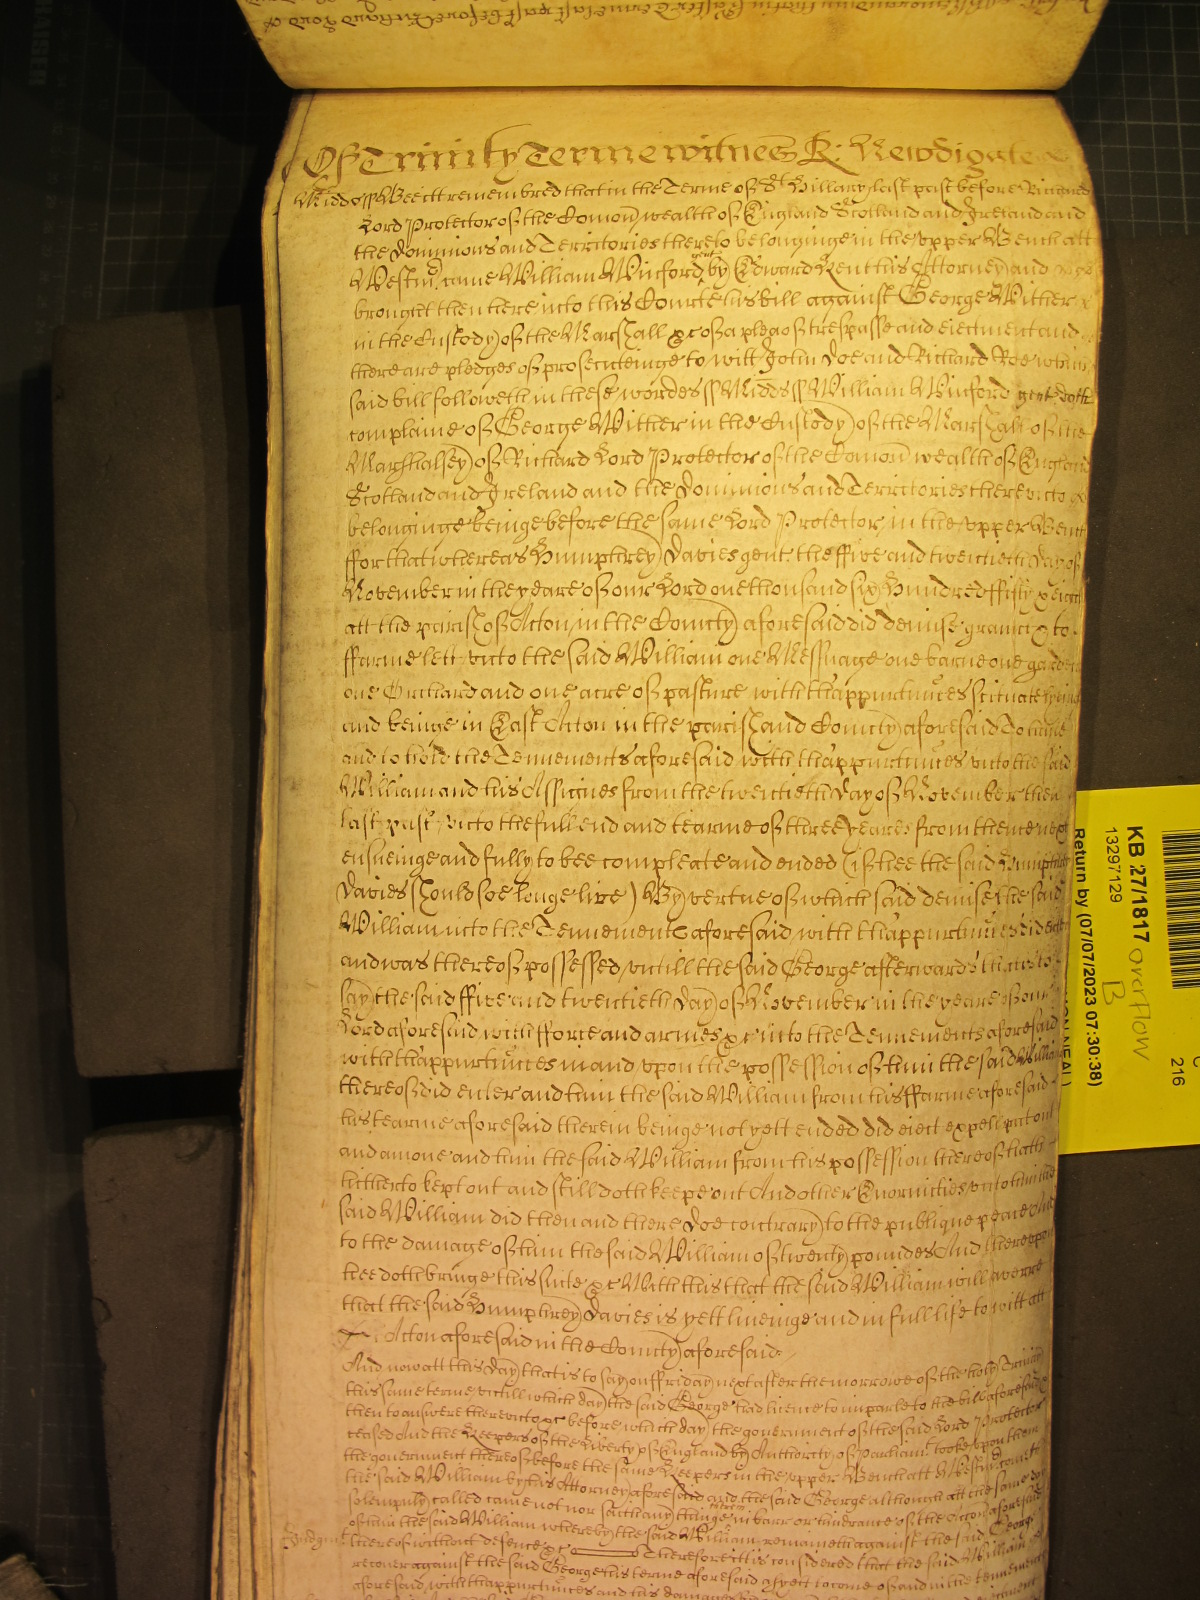 Of Trinity Terme witnes R: Newdigate
Midds ss Bee itt remembred that in the Terme of St Hillary last past before Richard
Lord Protector of the Comon wealth of England Scotland and Ireland and
the Dominions and Territories thereto belonginge in the upper Bench att
Westm came William Winford gent by Edward Kent his Attorney and
brought then here into this Courte his bill against George Wither
in the Custody of the Marshall &c of a plea of trespasse and eiectment and
there are pledges of prosecuteinge to witt John Doe and Richard Roe which
said bill followeth in these wordes ss Midds ss William Winford gent doth
complaine of George Wither in the Custody of the Marshall of the
Marshalsey of Richard Lord Protector of the Comon wealth of England
Scotland and Ireland and the Dominions and Territories thereunto
belonginge beinge before the same Lord Protector in the upper Bench
ffor that whereas Humphrey Davies gent the ffive and twentieth day of
November in the yeare of our Lord one thousand six Hundred ffifty & eight
att the parish of Acton in the County aforesaid did demise graunt & to
ffarme lett unto the said William one Messuage one barne one garden
one Orchard and one acre of pasture with thappurtnnces scituate lyeing
and beinge in East Acton in the parish and County aforesaid To have
and to hold the Tennements aforesaid with thappurtnnces unto the said
William and his Assignes from the twentieth day of November then
last past unto the full end and tearme of three yeares from thence next
ensueinge and fully to bee compleate and ended (if hee the said Humphrey
Davies should soe longe live) By vertue of which said demise the said
William into the Tennements aforesaid with thappurtnnces did enter
and was thereof possessed untill the said George afterwards that is to
say the said ffive and twentieth day of November in the yeare of our
Lord aforesaid with fforce and armes &c into the Tennements aforesaid
with thappurtnnces in and upon the possession of him the said William
thereof did enter and him the said William from his ffarme aforesaid
his tearme aforesaid therein beinge not yett ended did eiect expell put out
and amove and him the said William from his possession thereof hath
hitherto kept out and still doth keepe out And other Enormities unto him the
said William did then and there doe contrary to the publique peace And
to the damage of him the said William of twenty poundes And thereupon
hee doth bringe this suite &c With this that the said William will averre
that the said Humphrey Davies is yett liveinge and in full life to witt att
Acton aforesaid in the County aforesaid
And now att this day that is to say on ffriday next after the morrowe of the holy Trinity
this same terme untill which day the said George had licence to imparle to the bill aforesaid &
then to answere thereunto &c before which day the government of the said Lord Protector
ceased And the Keepers of the Liberty of England by Authority of Parliamt tooke upon them
the government thereof before the same Keepers in the upper Bench att Westm cometh
the said William by his Attorney aforesaid and the said George although att the same day
solempnly called came not nor saith any thinge therein in barr or hindrance of the Action aforesaid
of him the said William whereby the said William remaineth against the said George
Judgmt thereof without defence &c Therefore itt is considered that the said William
recover against the said George his terme aforesaid as yett to come of and in the tennements
aforesaid with thappurtnnces and his damages
KB 27/1817 overflow
B
13297129
Return by (07/07/2023 07:30:38)
216